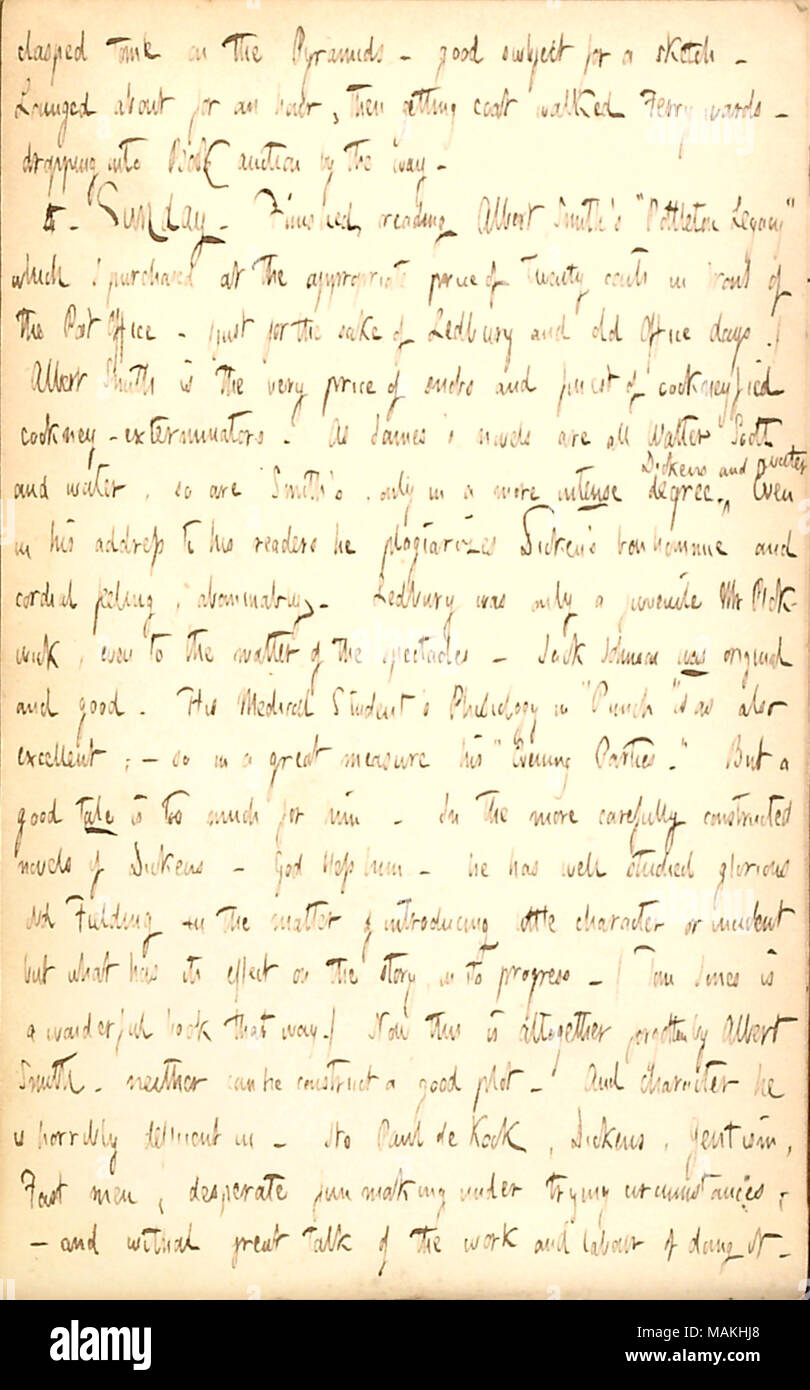 clasped tome on the Pyramids – good subject for a sketch –
Lounged about for an hour, then getting coat walked Ferry wards –
dropping into Book auction by the way –
8. Sunday. Finished reading Albert Smith's "Pottleton Legacy"
which I purchased at the appropriate price of twenty cents in front of
the Post Office – (just for the sake of Ledbury and old Office days.)
Albert Smith is the very price of snobs and finest of cockneyfied
cockney-exterminators. As James's novels are all Walter Scott
and water, so are Smith's, only in a more intense degree. ^ Dickens and water Even
in his address to his readers he plagiarizes Dicken's bonhommie and
cordial feeling, abominably. Ledbury was only a juvenile Mr Pick-
wick, even to the matter of the spectacles – Jack Johnson was original
and good. His Medical Student's Phisiology in "Punch" is as also
excellent; – so in a great measure his "Evening Parties." But a
good tale is too much for him – In the more carefully constructed
novels of Dickens – God help him – he has well studied glorious
old Fielding in the matter of introducing little character or incident
but what has its effect on the story in its progress – (Tom Jones is
a wonderful book that way.) Now this is altogether forgotten by Albert
Smith. neither can he construct a good plot – And character he
is horribly deficient in – It's Paul de Kock, Dickens, Gentism,
Fast men, desperate fun making under trying circumstances;
– and withal great talk of the work and labour of doing it –
alamy
Image ID: MAKHJ8
www.alamy.com